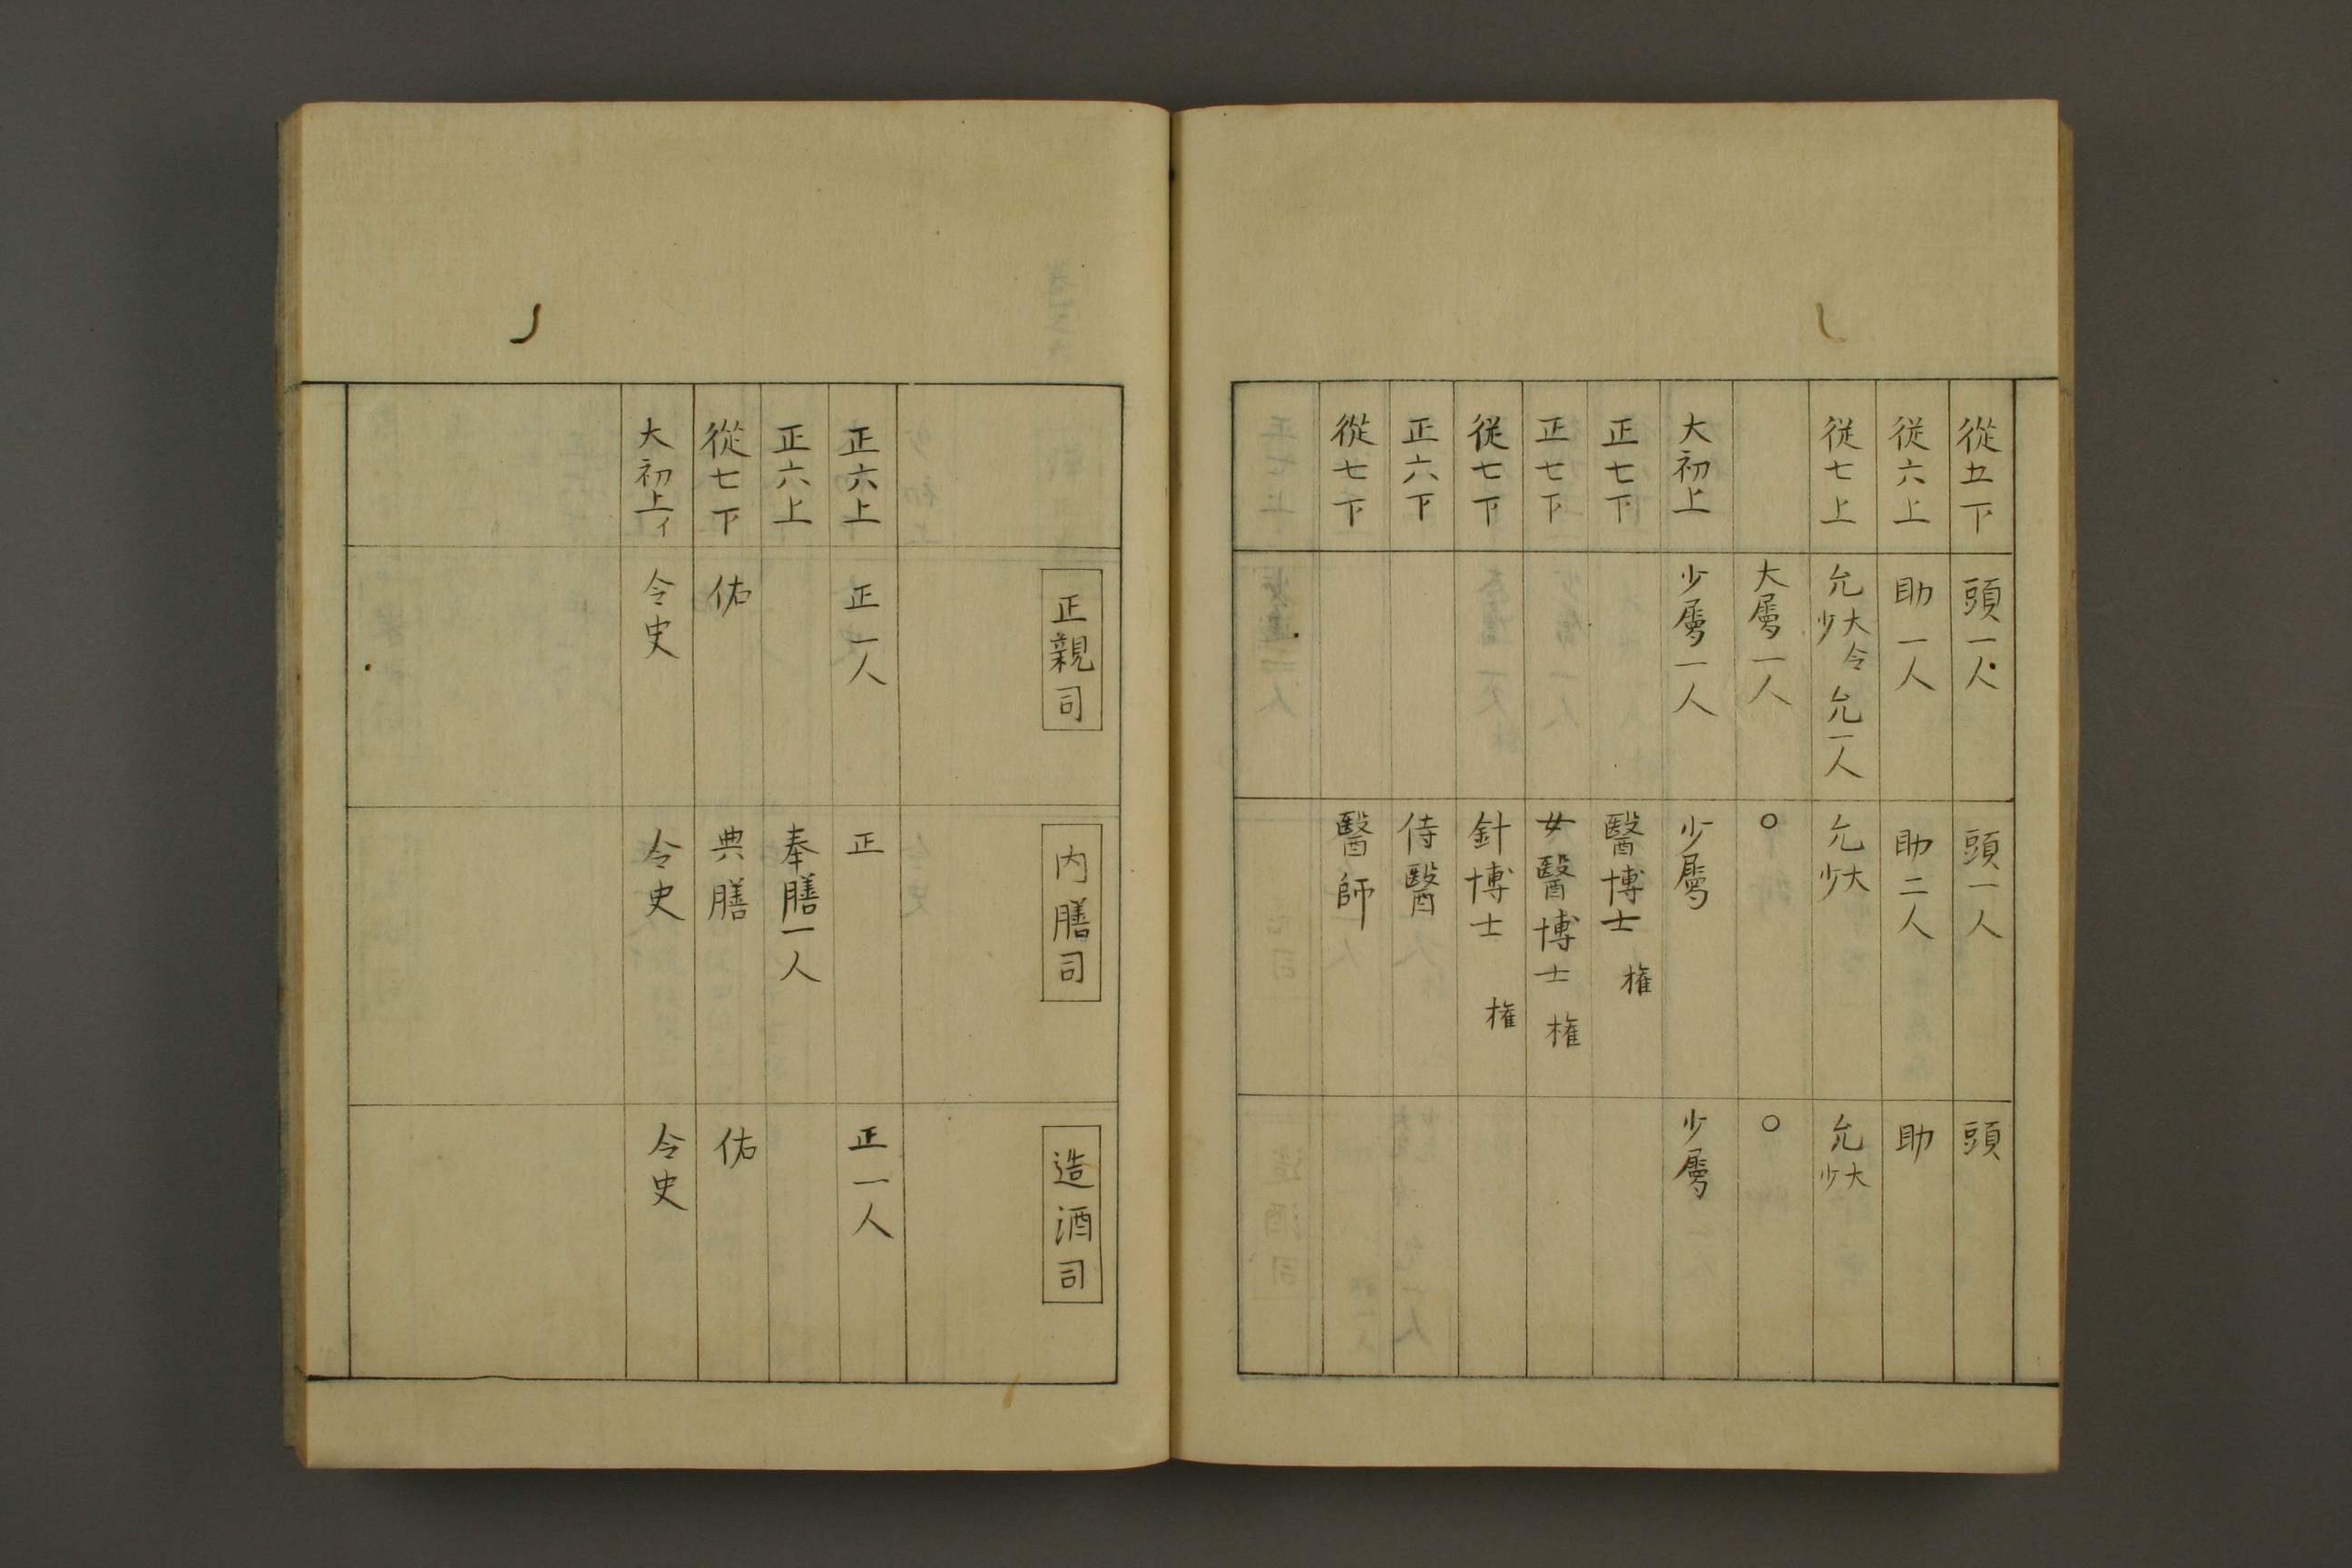 從五下 頭一人 頭一人 頭
従六上 助一人 助二人 助
従七上 允大少令允一人 允大少 允大少
大属一人 〇 〇
大初上 少属一人 少属 少属
正七下 醫博士 権
正七下 女醫博士 権
従七下 針博士 権
正六下 侍醫
從七下 醫師
正親司 内膳司 造酒司
正六上 正一人 正 正一人
正六上 奉膳一人
從七下 佑 典膳 佑
大初上イ 令史 令史 令史